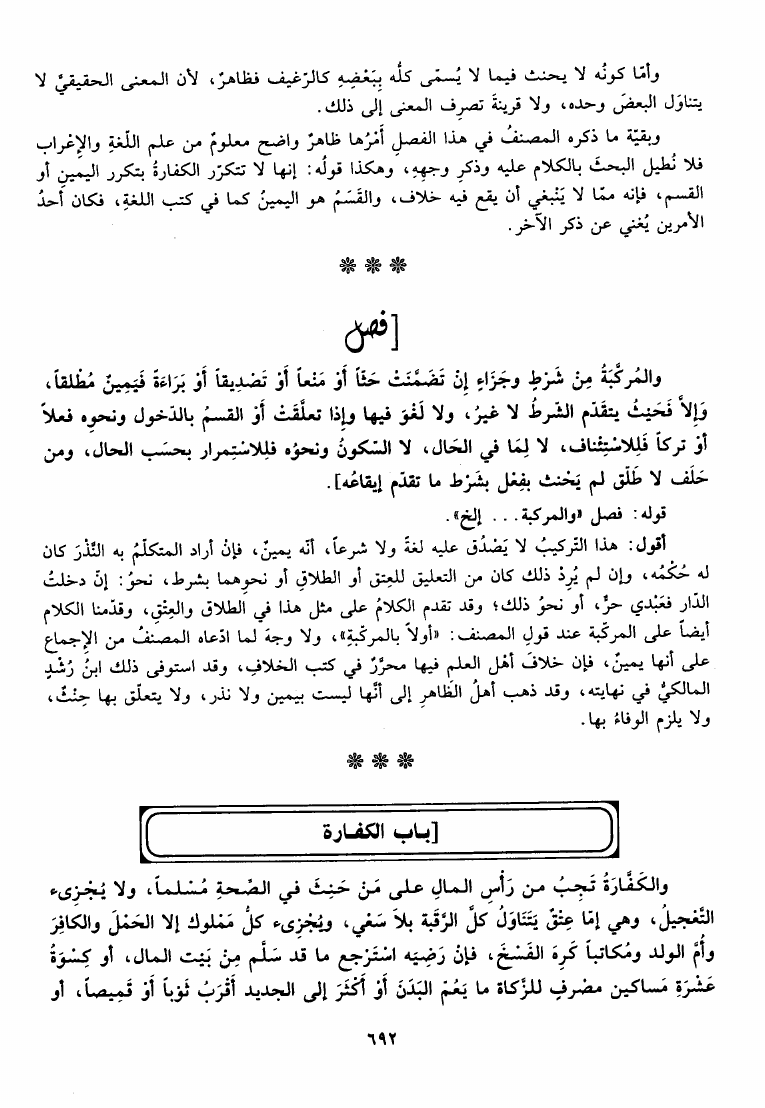 وأمّا كونُه لا يحنث فيما لا يُسمّى كلُّه بِبَعْضِهِ كالرّغيف فظاهرٌ، لأن المعنى الحقيقيَّ لا
يتناوَل البعضَ وحده، ولا قرينةَ تصرِف المعنى إلى ذلك.
وبقيّة ما ذكره المصنفُ في هذا الفصلِ أمْرُها ظاهرٌ واضح معلومٌ من علم اللّغةِ والإعْراب
فلا نُطيل البحثَ بالكلام عليه وذكرِ وجههِ، وهكذا قولُه: إنها لا تتكرّر الكفارةُ بتكرر اليمينِ أو
القسم، فإنه ممّا لا يَنْبغي أن يقع فيه خلاف، والقَسَمُ هو اليمينُ كما في كتب اللغةِ، فكان أحدُ
الأمرين يُغني عن ذكر الآخر.
❊ ❊ ❊
[فصل
والمُركَّبَةُ مِنْ شَرْطٍ وجَزَاءٍ إنْ تَضَمَّنَتْ حَثّاً أوْ مَنْعاً أوْ تَصْديقاً أوْ بَرَاءَةً فَيَمِينٌ مُطْلقاً،
وَإلاَّ فَحَيْثُ يتقدّم الشّرطُ لا غيرُ، ولا لَغْوَ فيها وإذا تعلَّقَتْ أوْ القسمُ بالدّخول ونحوِه فعلاً
أوْ تركاً فَلِلاسْتِئْناف، لا لِمَا في الحَال، لا السّكونُ ونحوُه فللاسْتِمرار بحسَب الحال، ومن
حَلَف لا طَلّق لم يَحْنث بفِعْل بشَرْط ما تقدّم إيقاعُه].
قوله: فصل «والمركبة... إلخ».
أقول: هذا التّركيبُ لا يَصْدُق عليه لغةً ولا شرعاً، أنّه يمينٌ، فإنْ أراد المتكلّمُ به النَّذْرَ كان
له حُكْمُه، وإن لم يُرِدْ ذلك كان من التعليق للعِتق أو الطلاقِ أو نحوِهما بشرط، نحوُ: إنّ دخلتُ
الدّار فعَبْدي حرٌّ، أو نحوُ ذلك؛ وقد تقدم الكلامُ على مثل هذا في الطلاق والعِتْقِ، وقدّمنا الكلام
أيضاً على المركّبة عند قولِ المصنف: «أولاً بالمركبةِ»، ولا وجهَ لما ادّعاه المصنفُ من الإجماع
على أنها يمينٌ، فإن خلافَ أهْل العلم فيها محرَّرٌ في كتب الخلافِ، وقد استوفى ذلك ابنُ رُشْدٍ
المالكيُّ في نهايته، وقد ذهب أهلُ الظّاهرِ إلى أنَّها ليست بيمين ولا نذر، ولا يتعلّق بها حِنْثٌ،
ولا يلزم الوفاءُ بها.
❊ ❊ ❊
[باب الكفارة
والكَفَّارَةُ تَجِبُ من رَأسِ المالِ على مَنْ حَنِثَ في الصّحةِ مُسْلماً، ولا يُجْزىء
التَّعْجيلُ، وهي إمّا عِتْقٌ يَتَنَاوَلُ كلَّ الرَّقَبة بلاَ سَعْي، ويُجْزىء كلُّ مَمْلوك إلا الحَمْلَ والكافِرَ
وأُمَّ الولد ومُكاتباً كَرِهَ الفَسْخَ، فإنْ رَضِيَه اسْتَرْجع ما قد سَلّم مِنْ بَيْت المال، أو كِسْوَةُ
عَشْرَةِ مَساكين مصْرفٍ للزّكاة ما يَعُمّ البَدَنَ أوْ أكْثَرَ إلى الجديد أقْرَبُ ثَوْباً أوْ قَمِيصاً، أو
٦٩٢